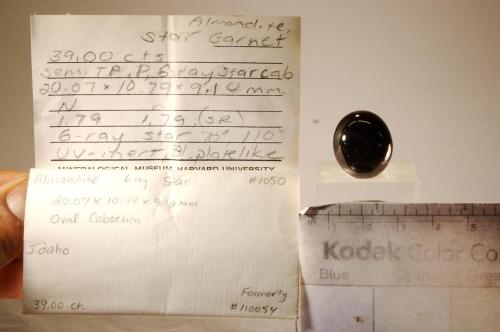 Almandite,
Star Garnet
39.00 cts
Semi TP, P, 6-ray star cab
20.07 x 10.79 x 9.10 mm
N
1.79 1.79 (SR)
6-ray star 110°
UV-inert platelike
MINERALOGICAL MUSEUM HARVARD UNIVERSITY
Almandite 6 ray Star #1050
20.07 x 10.79 x 9.10 mm
Oval Cabochon
Idaho
Formerly
39.00 ct. #110054
1 2 3 4 5
Kodak Color Co
Blue Cyan Green